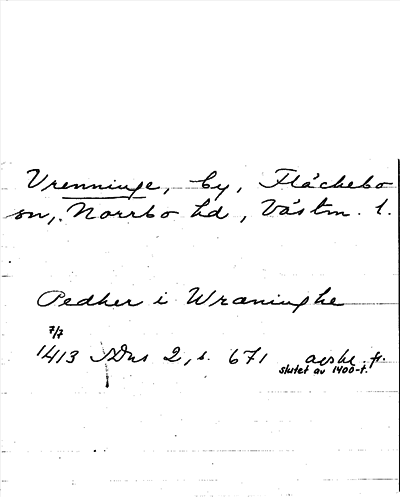 Vrenninge, by, Fläckebo
sn, Norrbo hd, Västm. l.
Pedher i Wræninghe
7/7
1413 SDns 2, s. 671 avskr. fr.
slutet av 1400-t.